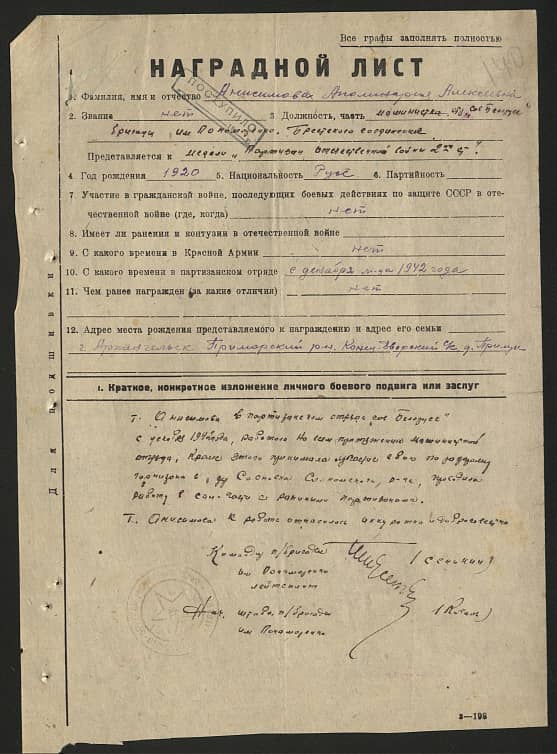 Все графы заполнять полностью
НАГРАДНОЙ ЛИСТ
ПОСТУПИЛО
1. Фамилия, имя и отчество Анисимова Аполинария Алексеевна
2. Звание нет 3 Должность, часть машинистка
бригады им Пономаренко Брестского соединения
Представляется к медали „Партизан отечественной войны 2ой ст"
4 Год рождения 1920 5. Национальность Русс 6. Партийность
7 Участие в гражданской войне, последующих боевых действиях по защите СССР в оте-
чественной войне (где, когда) нет
8. Имеет ли ранения и контузии в отечественной войне
9. С какого времени в Красной Армии нет
10. С какого времени в партизанском отряде с декабря м-ца 1942 года
11. Чем ранее награжден (за какие отличия) нет
12. Адрес места рождения представляемого к награждению и адрес его семьи
г. Архангельск Приморский р-н,
Для подшивки
1. Краткое, конкретное изложение личного боевого подвига или заслуг
Т. Анисимова в партизанском отряде
с декабря работала на машинисткой
отряда, кроме этого принимала участие в бою по разгрому
гарнизона в д. Сосновка проводила
работу в сан-части с ранеными партизанами.
Т. Анисимова к работе относилась аккуратно и добросовестно
Командир п/бригады
им Пономаренко
лейтенант
Нач. штаба п/бригады
им Пономаренко
з—198